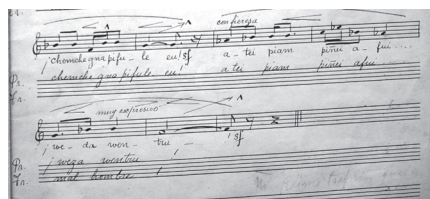 con fiereza
¡chemchegnapifu-le eu! sf a-tei piam piñei a-fui....
Pr. chemchegnapifule eu! atei piam piñei afui
Tr.
muy expresivo
¡we-da wen-tru- ! sf
Pr. ¡weza wentru !
Tr. mal hombre !